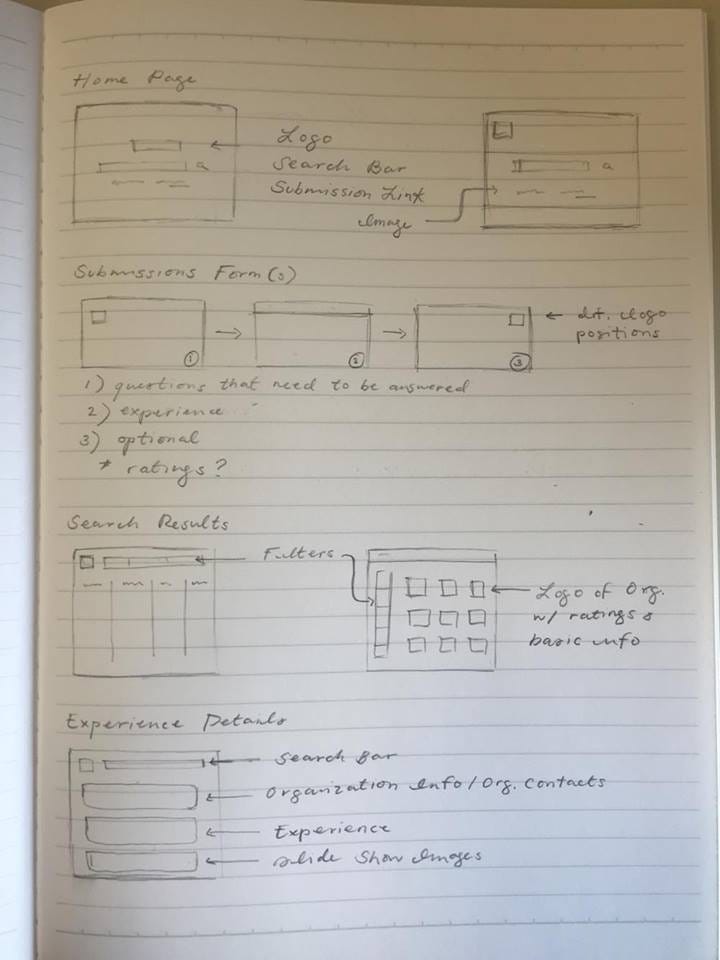 Home Page
Logo
Search Bar
a
a
Submission Link
Image
Submissions Form(s)
dif. Logo
positions
1
2
3
1) questions that need to be answered
2) experience
3) optional
* ratings?
Search Results
Filters
Logo of Org.
w/ ratings &
basic info
Experience Details
Search Bar
Organization Info/Org. Contacts
Experience
Slide Show Images